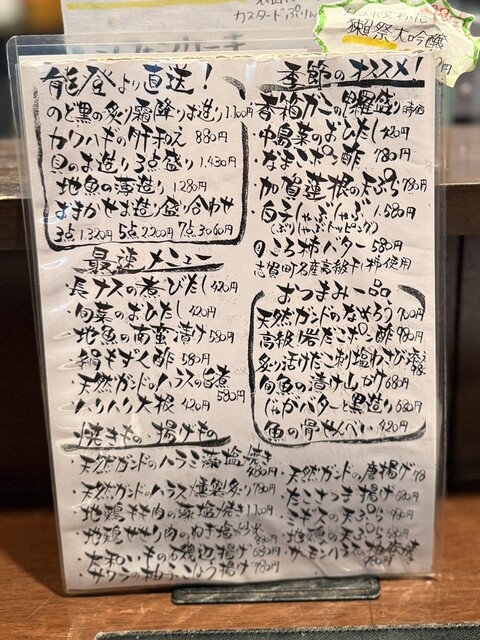 カスタードぷりん
獺祭 大吟醸
能登より直送!
のど黒の炙り霜降りお造り 1.100円
カワハギの肝和え 880円
貝のお造り3点盛り 1.430円
地魚の薄造り 1.280円
おまかせお造り盛り合わせ
3点 1.320円 5点 2.200円 7点 3.060円
最速メニュー
・長ナスの煮びたし 420円
・旬菜のおひたし 420円
・地魚の南蛮漬け 580円
・絹もずく酢 580円
・天然ガンドのハラスの旨煮 580円
・ハリハリ大根 420円
焼きもの・揚げもの
・天然ガンドのハラミ藻塩焼き
・天然ガンドのハラス燻製炙り 780円
・地鶏もも肉の藻塩焼き 1.100円
・地鶏せせり肉のねぎ塩炒め 880円
・大和いもの石磯辺揚げ 680円
・サワラの柚子こしょう揚げ 780円
季節のオススメ!
香箱ガニの甲羅盛り 時価
・中島菜のおひたし 420円
・なまこポン酢 780円
・加賀蓮根の天ぷら 780円
・白子しゃぶしゃぶ 1.580円
(ぶりしゃぶトッピング)
・ころ柿バター 580円
志賀町名産高級干し柿使用
おつまみ一品
天然ガンドのなめろう
高級岩だこポン酢 980円
炙り活けだこ刺塩わさび添え
旬魚の漬け山かけ 680円
じゃがバターと黒造り 680円
魚の骨せんべい 420円
・天然ガンドの唐揚げ
・たこさつま揚げ 680円
・ミギスの天ぷら
・地鶏の天ぷら